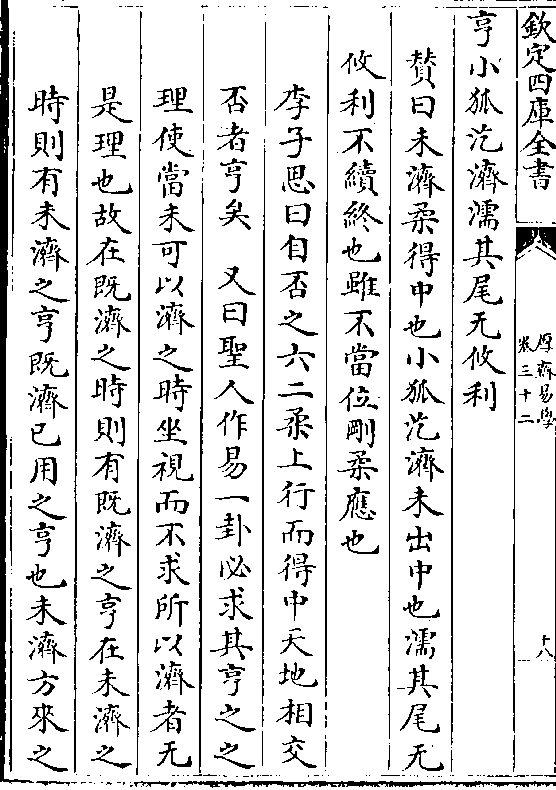 欽定四庫全書
厚齋易學
卷三十二
十八
亨小狐汔濟濡其尾无攸利
贊曰未濟柔得中也小狐汔濟未出中也濡其尾无
攸利不續終也雖不當位剛柔應也
李子思曰自否之六二柔上行而得中天地相交
否者亨矣　又曰聖人作易一卦必求其亨之之
理使當未可以濟之時坐視而不求所以濟者无
是理也故在既濟之時則有既濟之亨在未濟之
時則有未濟之亨既濟已用之亨也未濟方來之